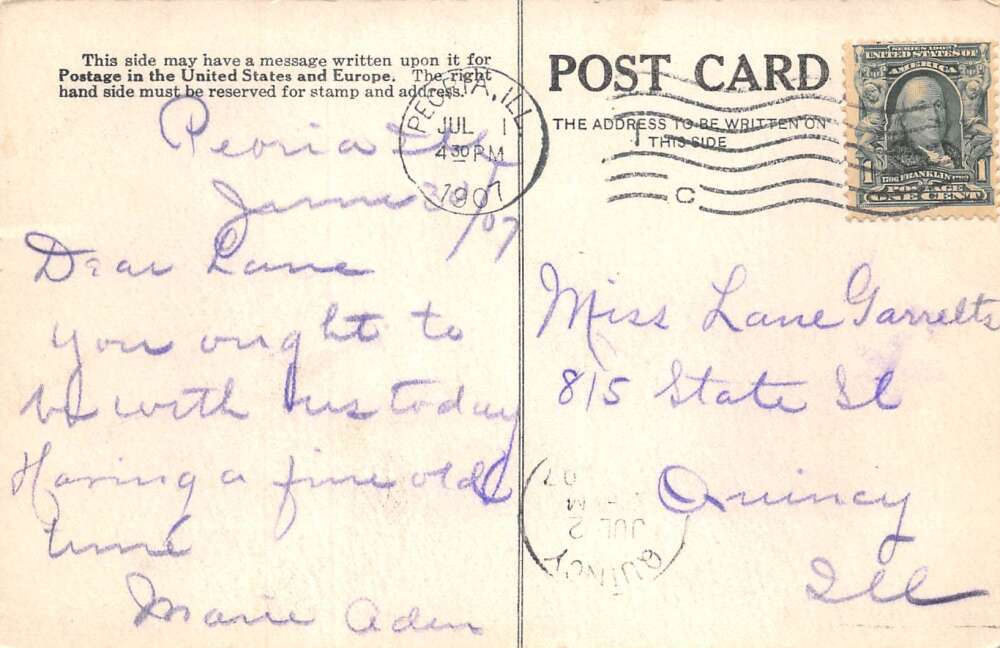 This side may have a message written upon it for
Postage in the United States and Europe. The right
hand side must be reserved for stamp and address.
Peoria Ill
June 30
/07
Dear Lane
you ought to
be with us today
Having a fine old
time
Marie Aden
PEORIA, ILL.
JUL 1
4 30 PM
1907
POST CARD
THE ADDRESS TO BE WRITTEN ON
THIS SIDE
C
SERIES 1902
UNITED STATES OF
AMERICA
1 1706 FRANKLIN 1790 1
POSTAGE
ONE CENT
Miss Lane Garrelts
815 State St
Quincy
Ill
QUINCY
JUL 2
M
07